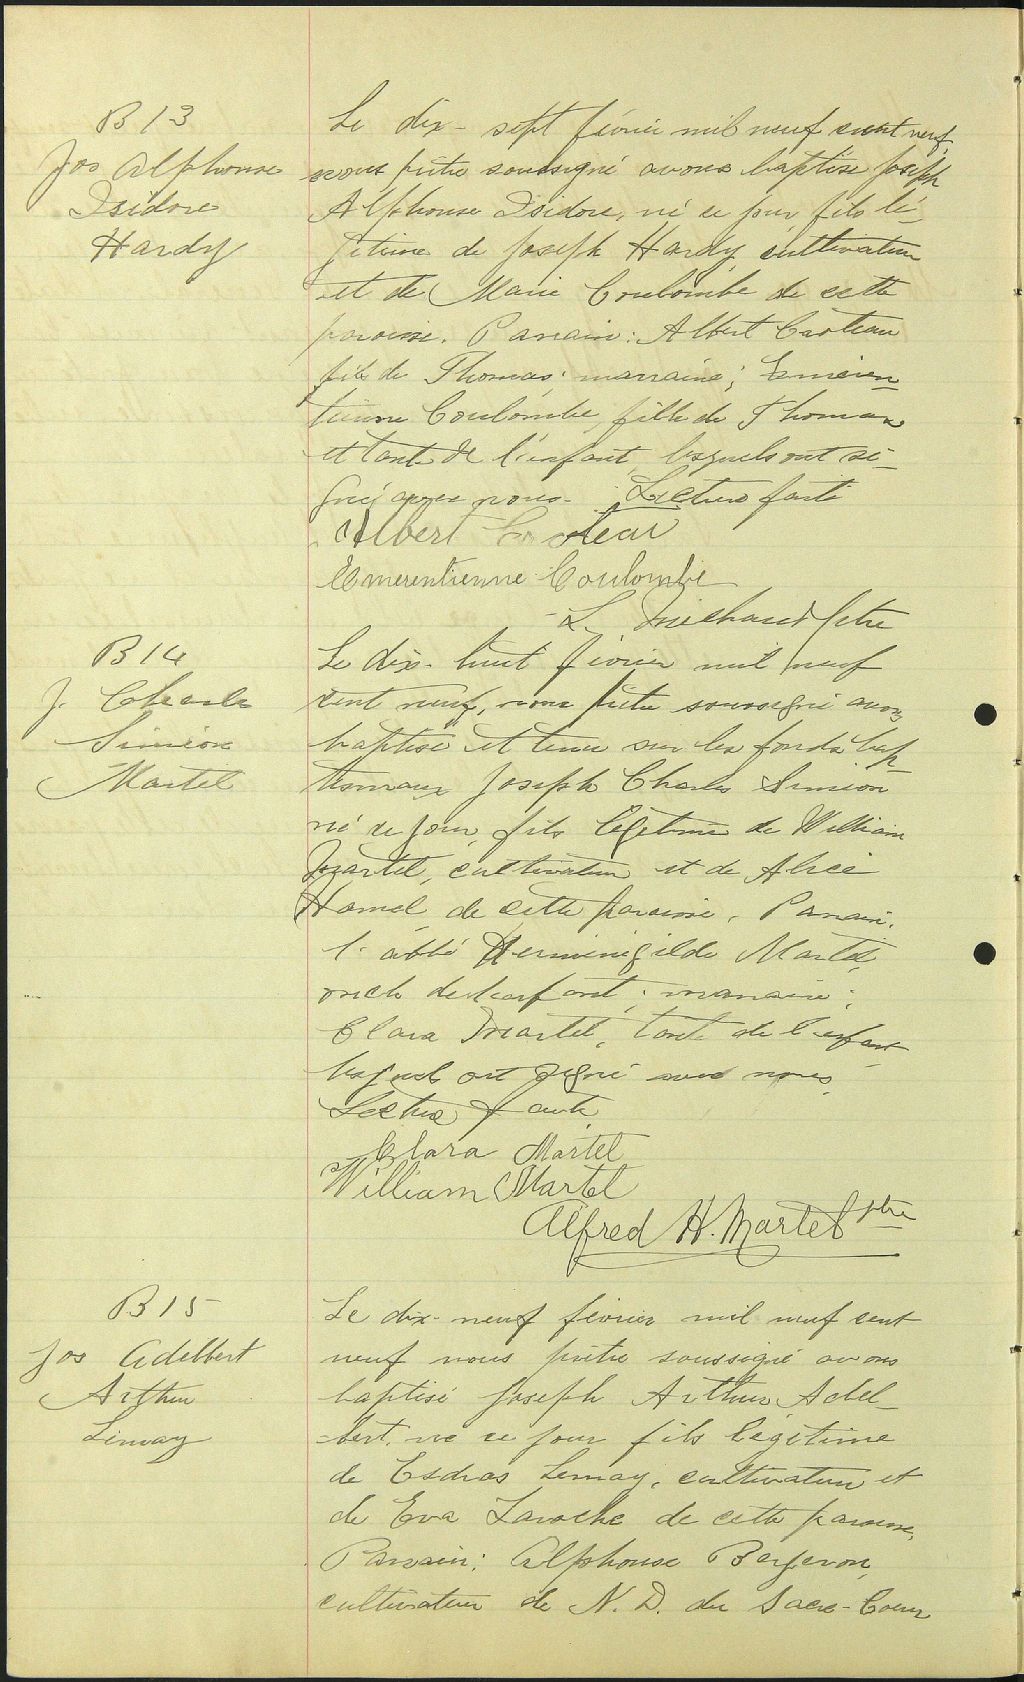 B 13
Jos Alphonse
Isidore
Hardy
Le dix-sept février mil neuf cent neuf,
nous, prêtre soussigné avons baptisé Joseph
Alphonse Isidore, né ce jour fils lé-
gitime de Joseph Hardy, cultivateur
et de Marie Coulombe de cette
paroisse. Parrain: Albert Croteau
fils de Thomas; marraine; Emeren-
tienne Coulombe, fille de Thomas
et tante de l'enfant, lesquels ont si-
gné avec nous. Lecture faite
Albert Croteau
Emerentienne Coulombe
L. Michaud Ptre
B 14
J. Charles
Siméon
Martel
Le dix-huit février mil neuf
cent neuf, nous prêtre soussigné avons
baptisé et tenu sur les fonds bap-
tismaux Joseph Charles Siméon
né ce jour, fils légitime de William
Martel, cultivateur et de Alice
Hamel de cette paroisse. Parrain.
l'abbé Herménégilde Martel,
oncle de l'enfant; marraine:
Clara Martel, tante de l'enfant
lesquels ont signé avec nous.
Lecture faite
Clara Martel
William Martel
Alfred H. Martel ptre
B 15
Jos Adelbert
Arthur
Lemay
Le dix-neuf février mil neuf cent
neuf nous prêtre soussigné avons
baptisé Joseph Arthur Adel-
bert, né ce jour fils légitime
de Esdras Lemay, cultivateur et
de Eva Laroche de cette paroisse,
Parrain: Alphonse Bergeron,
cultivateur de N. D. du Sacré-Coeur